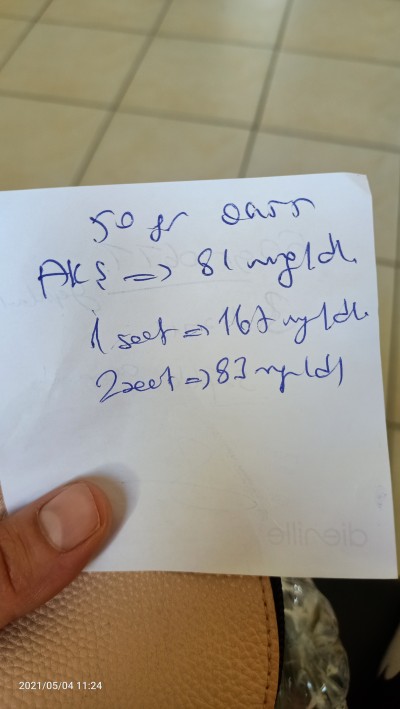 50 gr OGTT
AKŞ => 81 mg/dl
1 saat => 167 mg/dl
2 saat => 83 mg/dl
dienille
2021/05/04 11:24